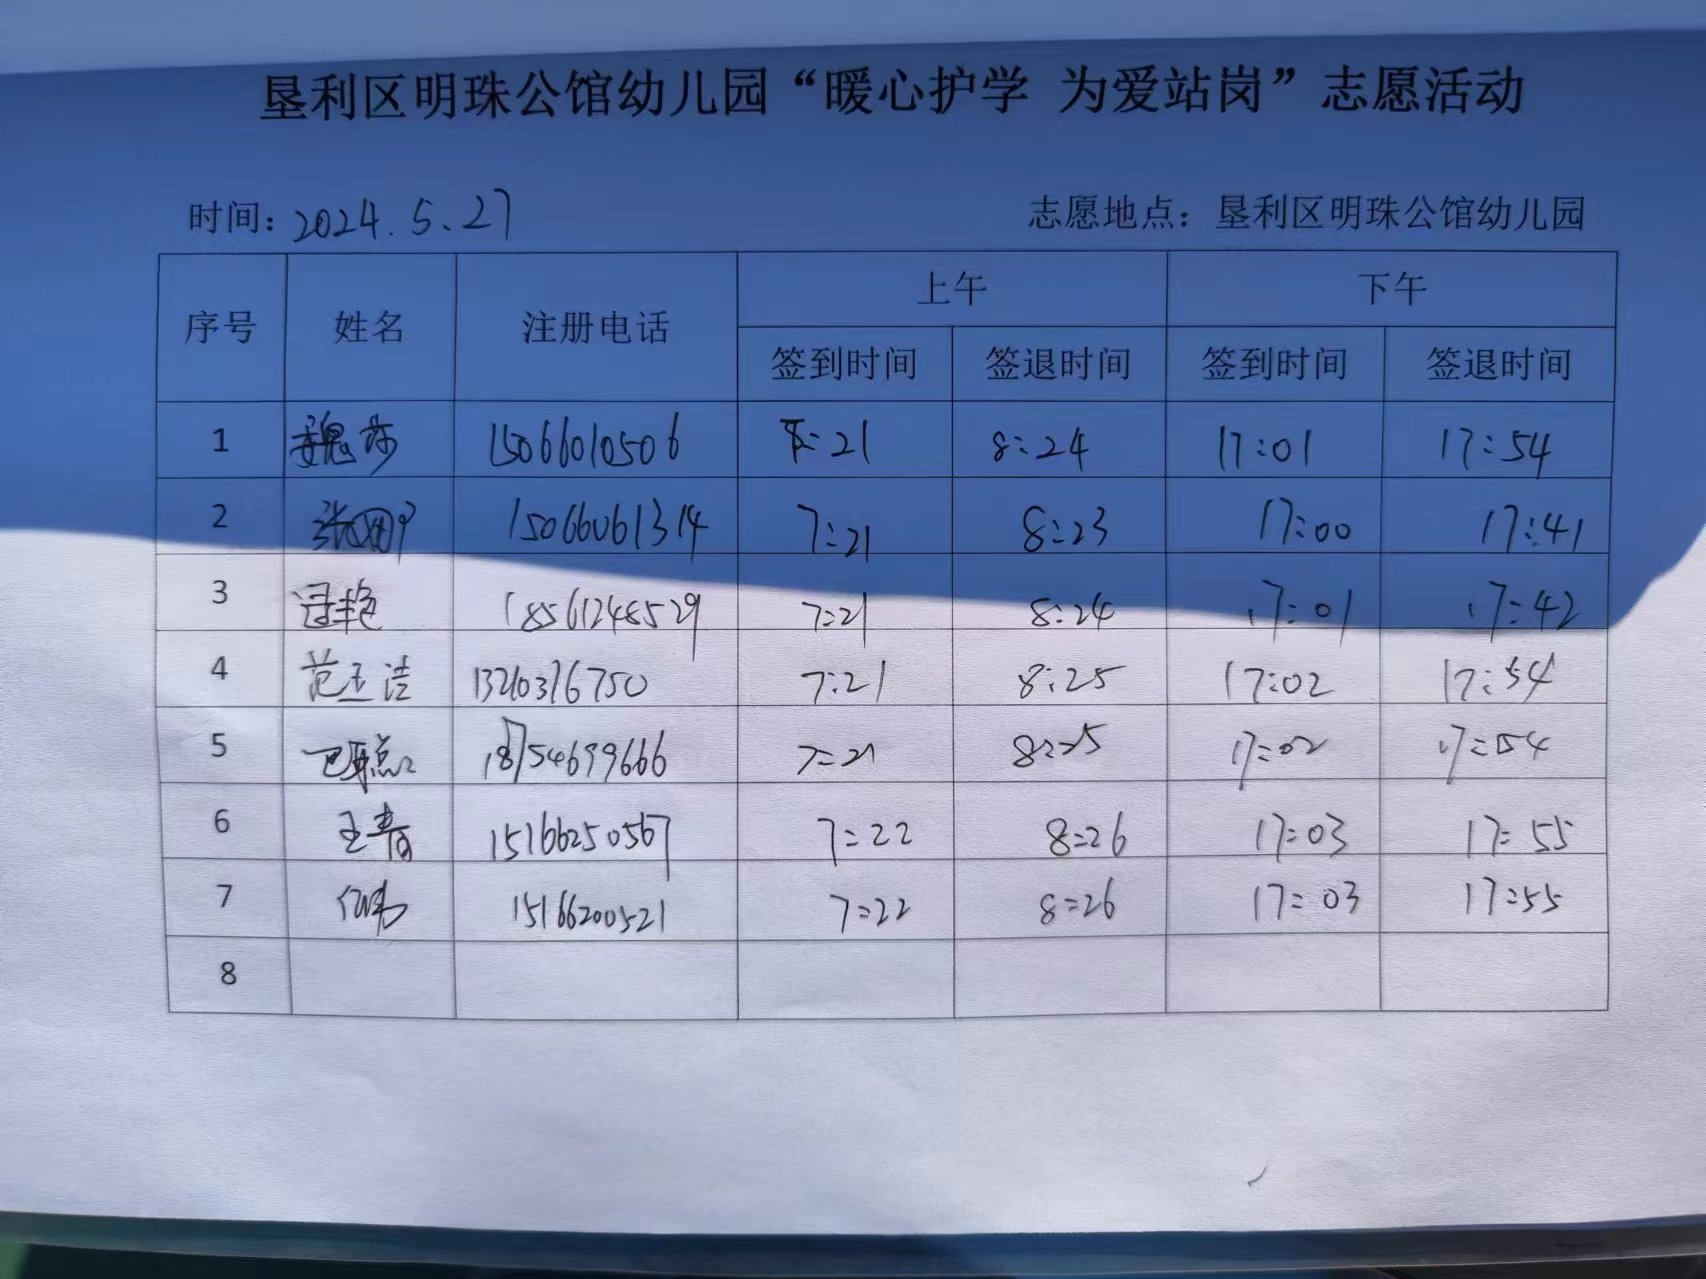 垦利区明珠公馆幼儿园“暖心护学 为爱站岗”志愿活动
时间: 2024.5.27 志愿地点：垦利区明珠公馆幼儿园
上午 下午
序号 姓名 注册电话
签到时间 签退时间 签到时间 签退时间
1 魏莎 15066010506 :21 8:24 17:01 17:54
2 15066061314 7:21 8:23 17:00 17:41
3 18561248529 7:21 8:24 17:01 17:42
4 范玉洁 13210376750 7:21 8:25 17:02 17:54
5 18754699666 7:21 8:25 17:02 17:54
6 王春 15166250567 7:22 8:26 17:03 17:55
7 15166200521 7:22 8:26 17:03 17:55
8